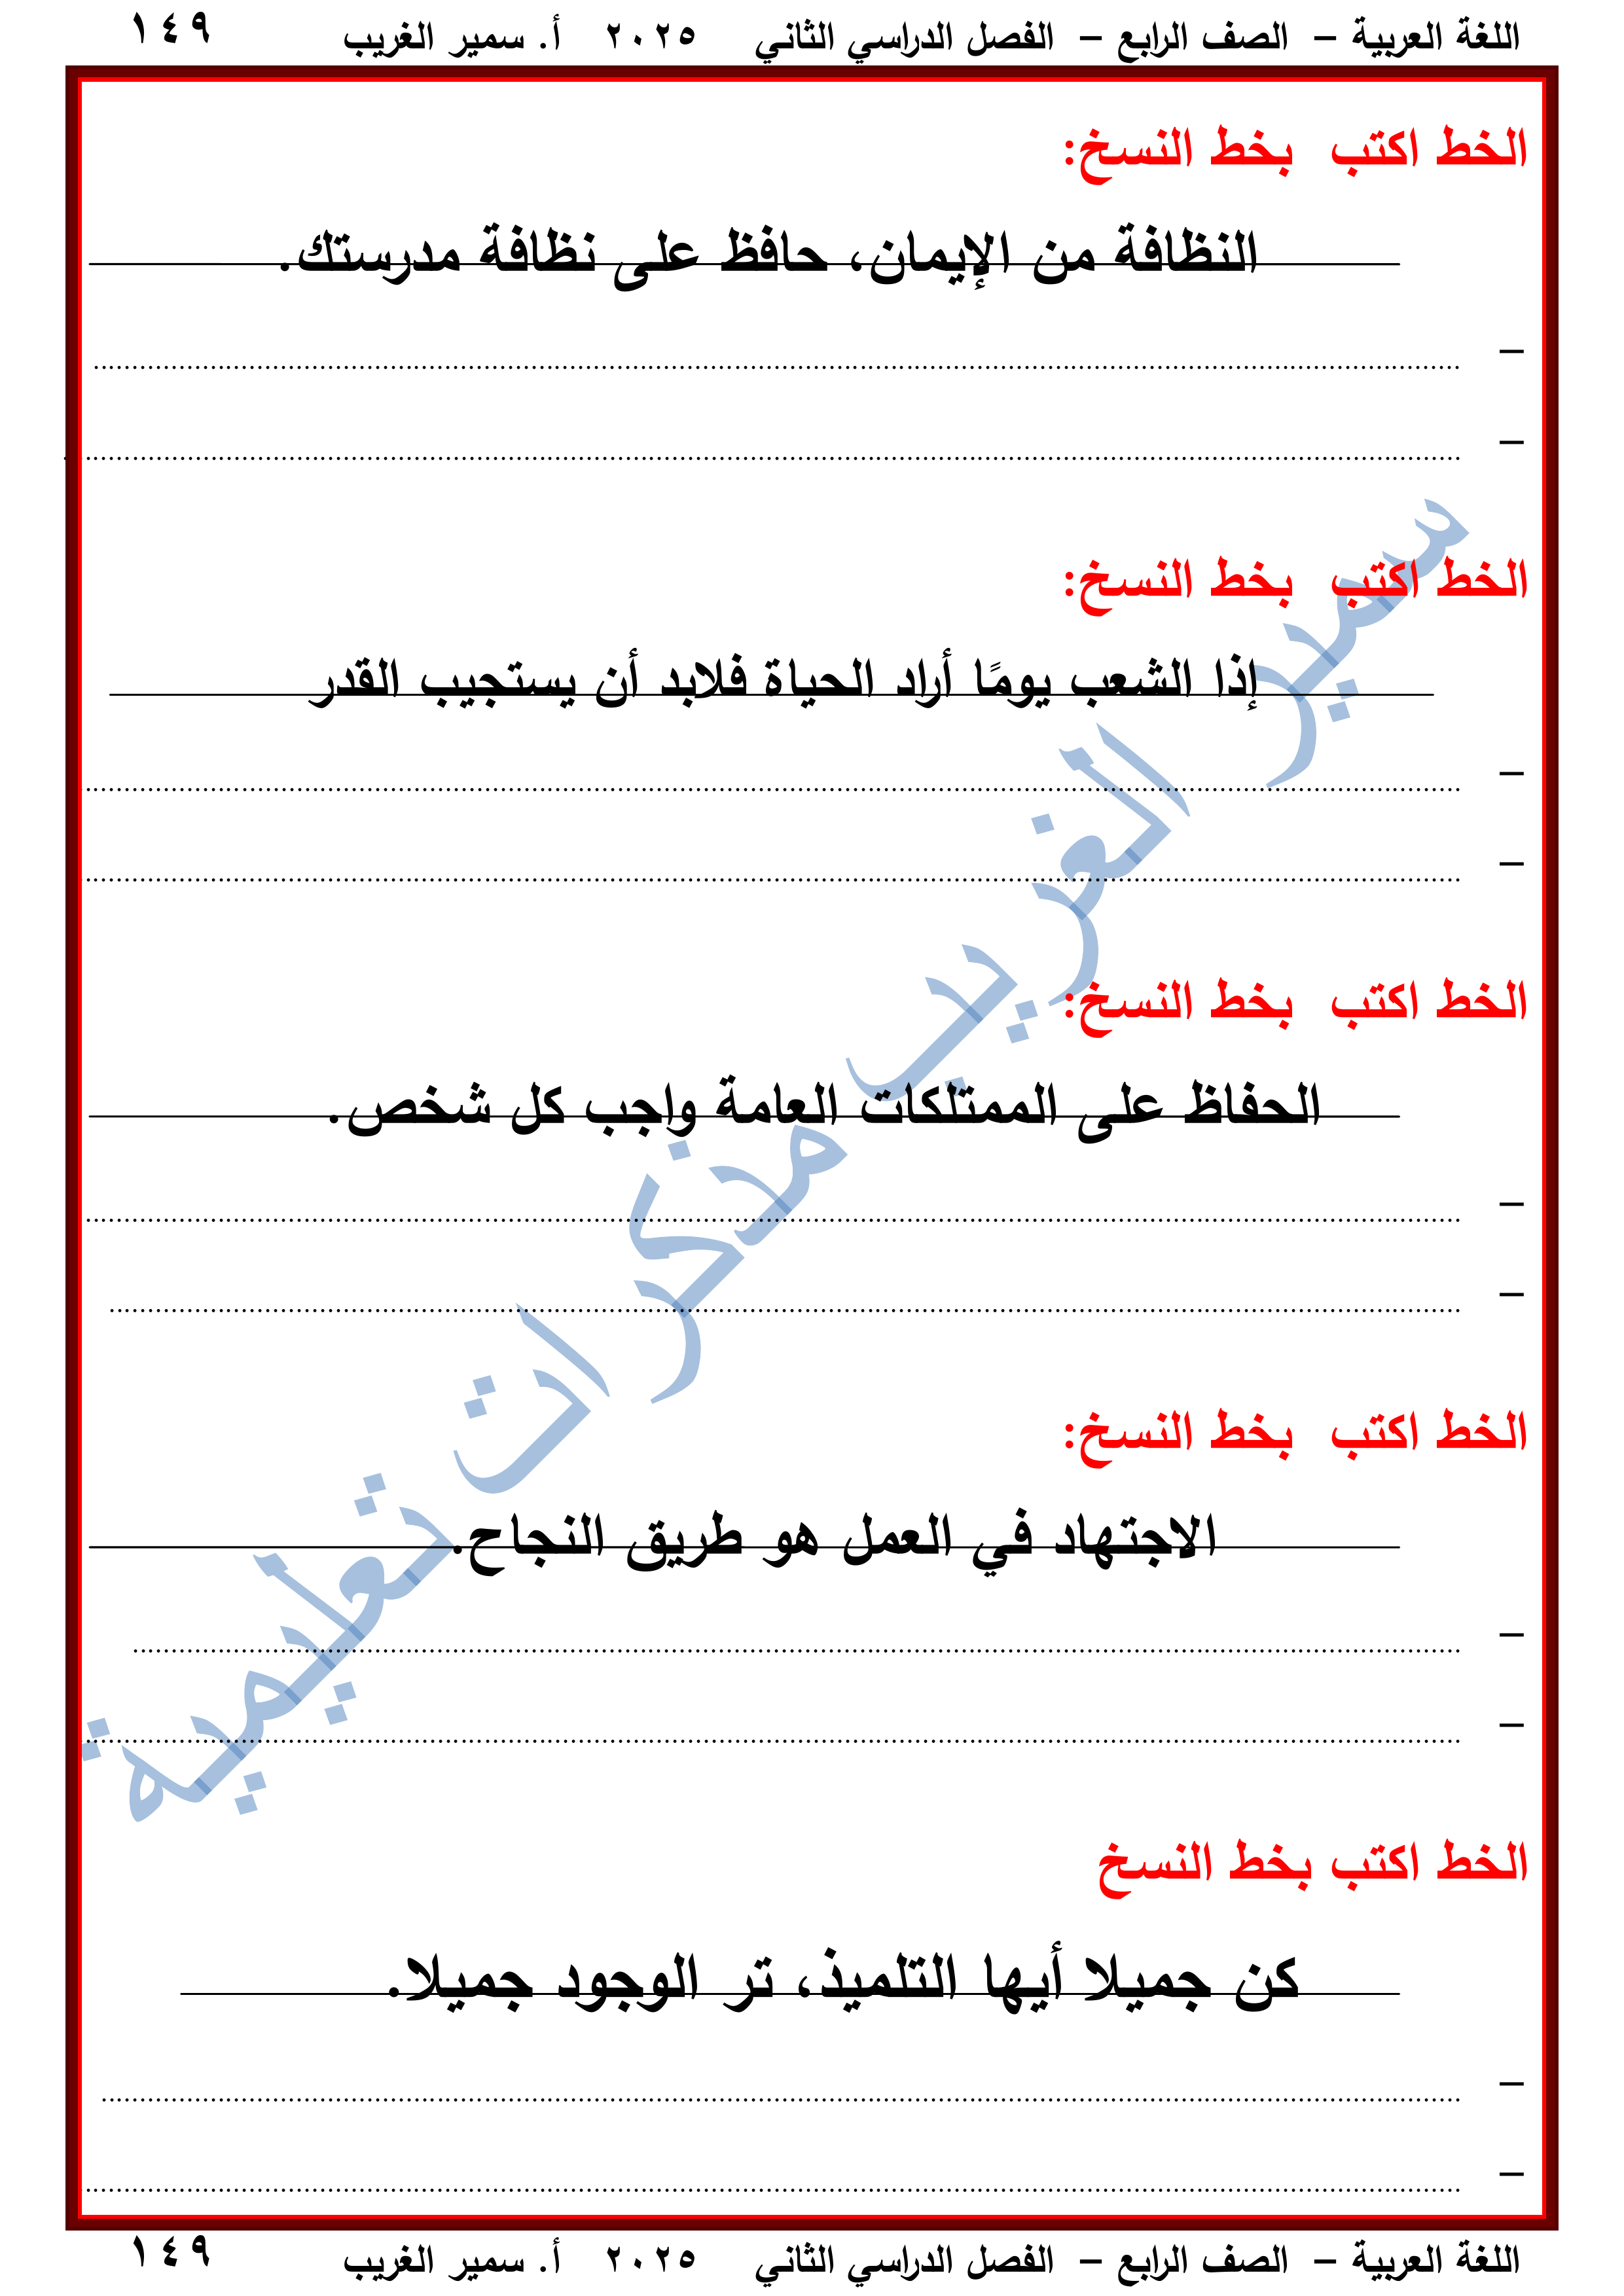 اللغة العربية – الصف الرابع – الفصل الدراسي الثاني ٢٠٢٥ أ. سمير الغريب ١٤٩
الخط اكتب بخط النسخ:
النظافة من الإيمان، حافظ على نظافة مدرستك.
–
–
الخط اكتب بخط النسخ:
إذا الشعب يومًا أراد الحياة فلابد أن يستجيب القدر
–
–
الخط اكتب بخط النسخ:
الحفاظ على الممتلكات العامة واجب كل شخص.
–
–
الخط اكتب بخط النسخ:
الاجتهاد في العمل هو طريق النجاح.
–
–
الخط اكتب بخط النسخ
كن جميلا أيها التلميذ، تر الوجود جميلا.
–
–
سمير الغريب مذكرات تعليمية
اللغة العربية – الصف الرابع – الفصل الدراسي الثاني ٢٠٢٥ أ. سمير الغريب ١٤٩